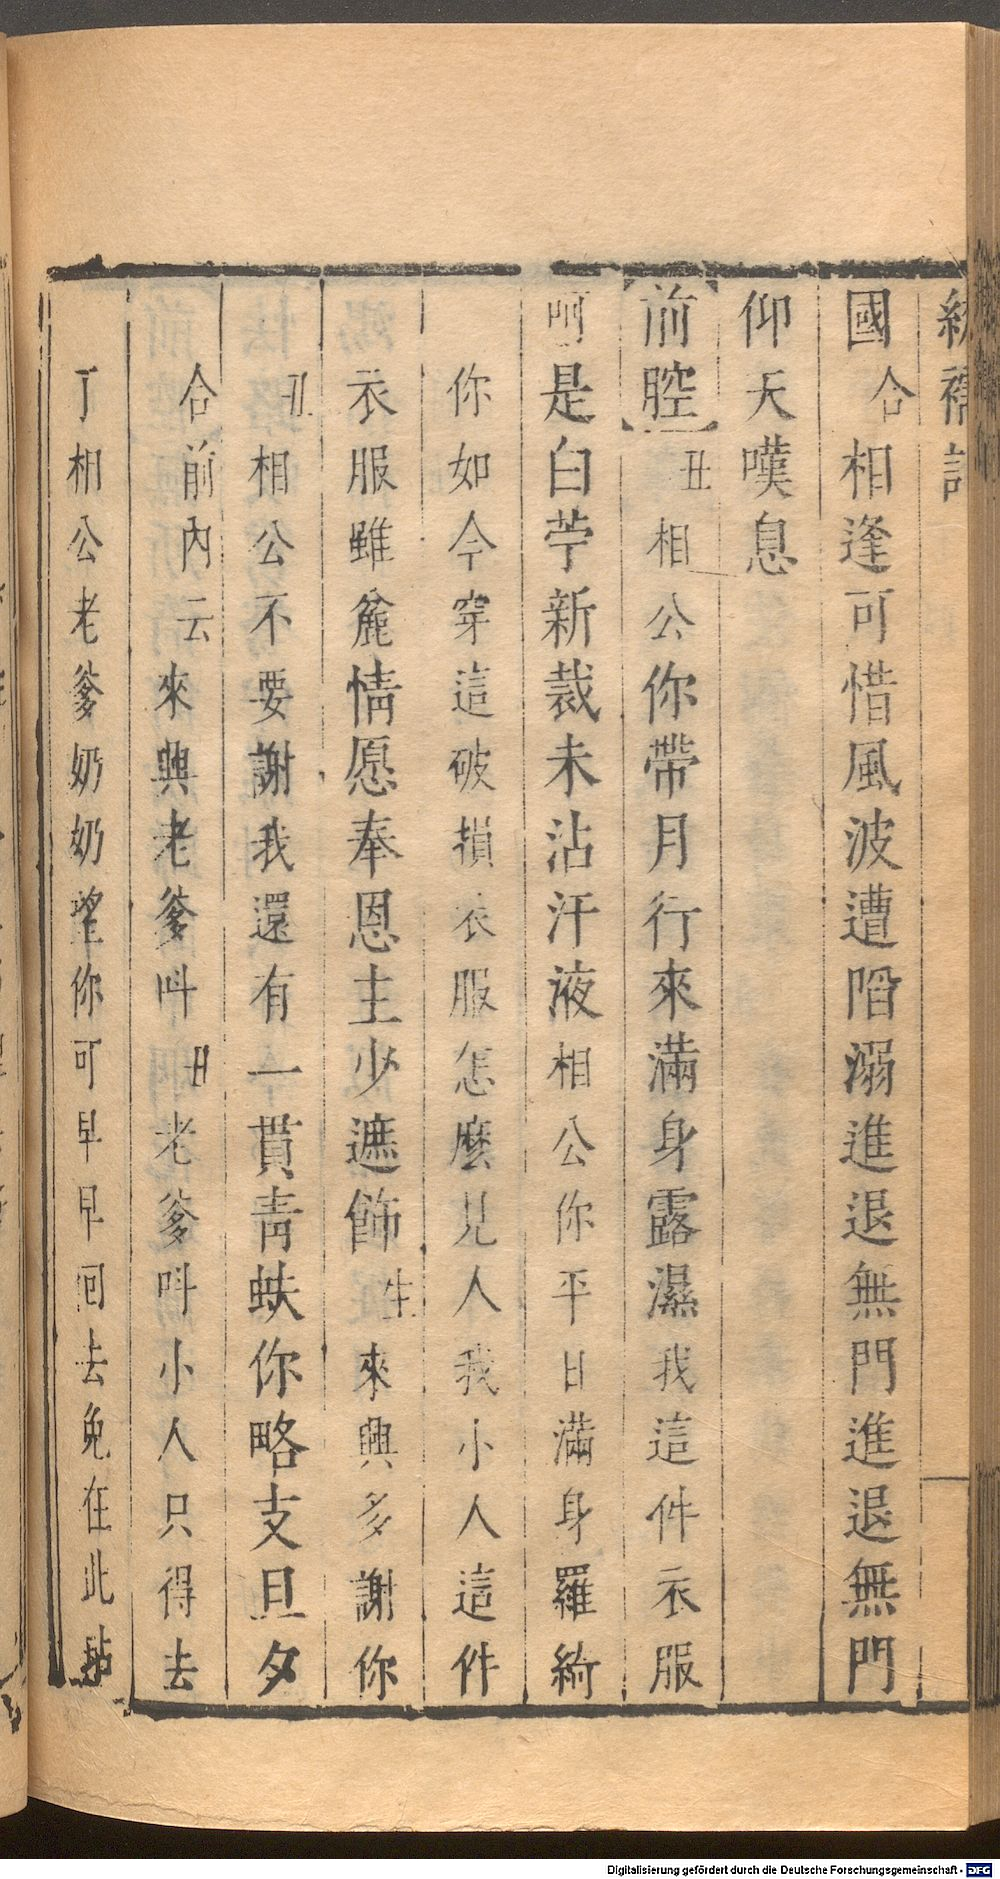 繡襦記
國合相逢可惜風波遭陷溺進退無門進退無門
仰天嘆息
前腔丑相公你帶月行來滿身露濕我這件衣服
呵是白苧新裁未沾汗液相公你平日滿身羅綺
你如今穿這破損衣服怎麽見人我小人這件
衣服雖麄情愿奉恩主少遮飾生來興多謝你
丑相公不要謝我還有一貫青蚨你略支旦夕
合前內云來興老爹呌丑老爹呌小人只得去
了相公老爹奶奶望你可早早回去免在此
Digitalisierung gefördert durch die Deutsche Forschungsgemeinschaft - DFG